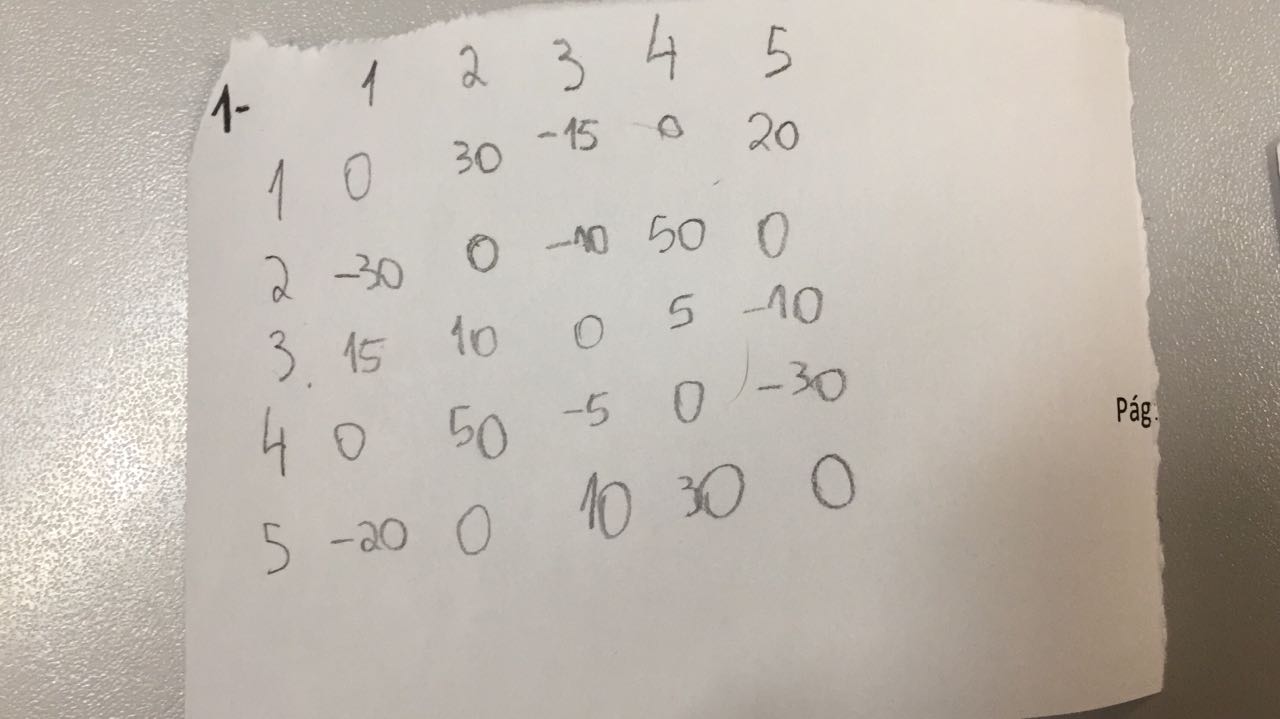 1- 1 2 3 4 5
1 0 30 -15 0 20
2 -30 0 -10 50 0
3. 15 10 0 5 -10
4 0 50 -5 0 -30
5 -20 0 10 30 0
Pág.